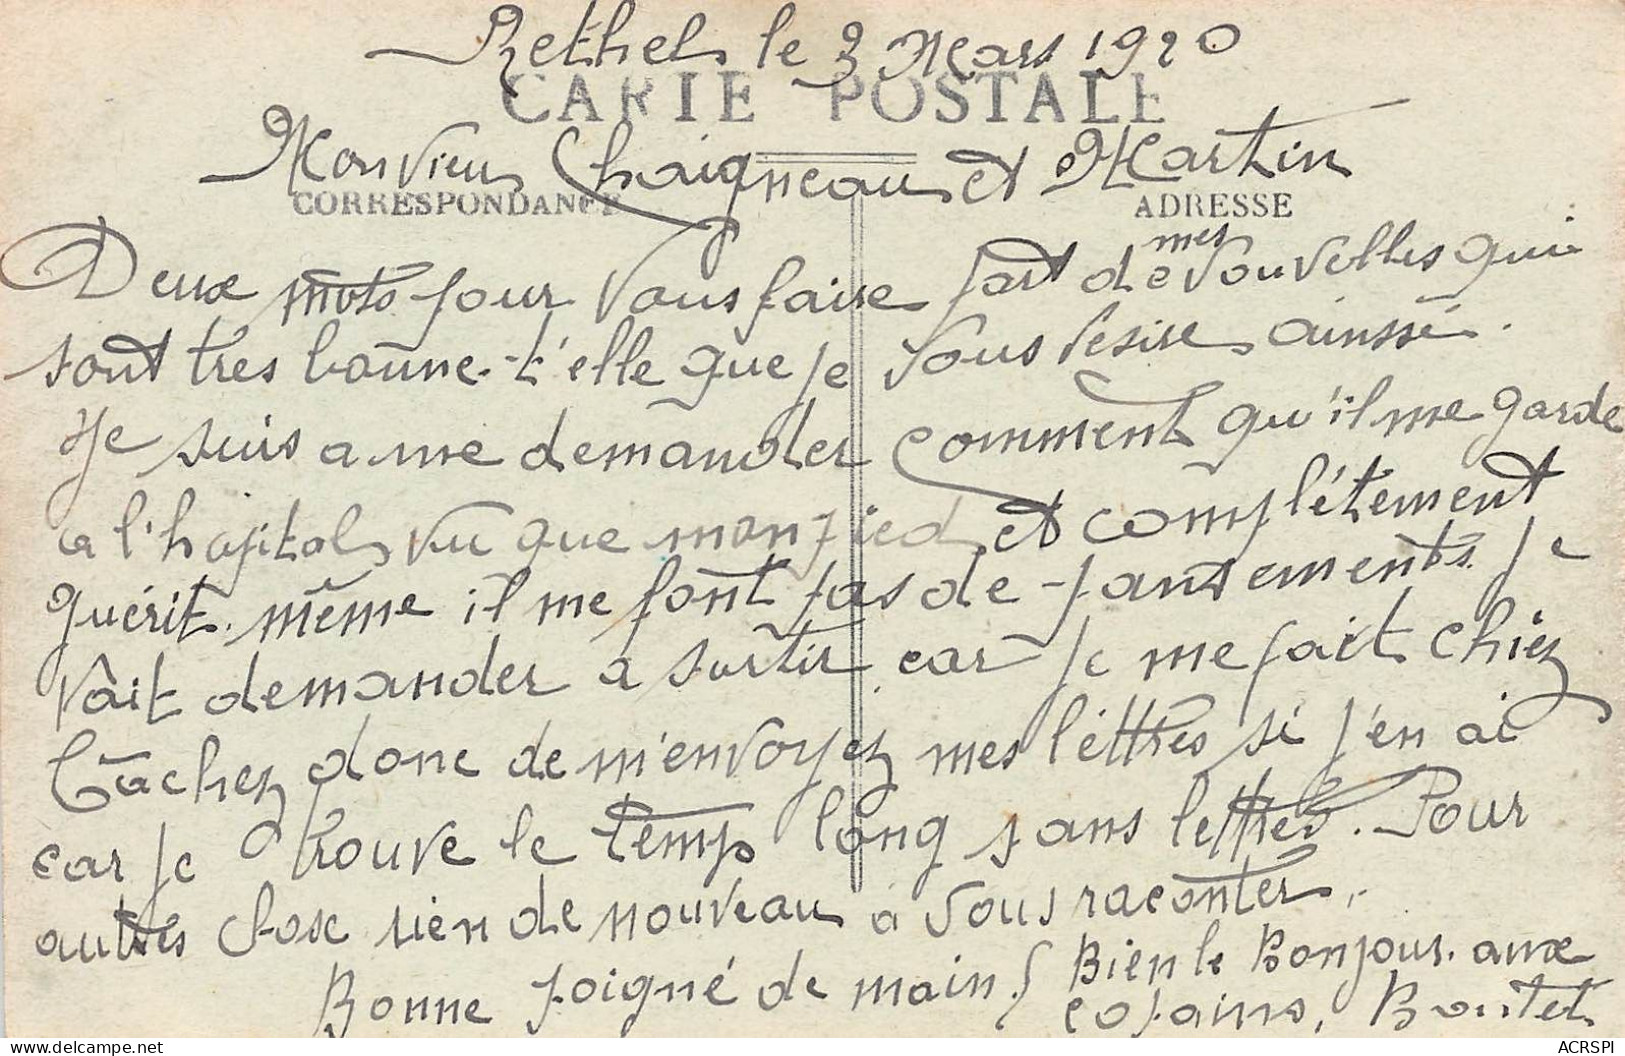 Rethel le 3 Mars 1920
CARTE POSTALE
Monsieur Chaigneau et Martin
CORRESPONDANCE
ADRESSE
Deux mots pour vous faire part de mes nouvelles qui
sont très bonne t'elle que je vous désire ainssi.
Je suis a me demander comment qu'il me garde
a l'hopital vu que mon pied et complétement
guérit. même il me font pas de pansements. je
vait demander a sortir car je me fait chiez
Tachez donc de m'envoyez mes lettres si j'en ai
car je trouve le temp long sans lettres. Pour
autres chose rien de nouveau a vous raconter.
Bonne poigné de main
Bien le Bonjour aux
copains, Boutet
ACRSPI